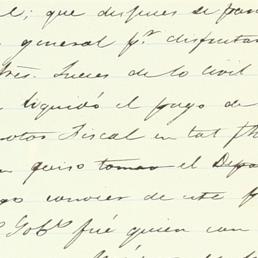 l; que despues se pan
general pr. disfrutar
tres. Jueces de lo civil
liquidó el pago de
otor Fiscal en tal fh
n quiso tomar el Depo
go conocer de este
Gobo. fué quien con